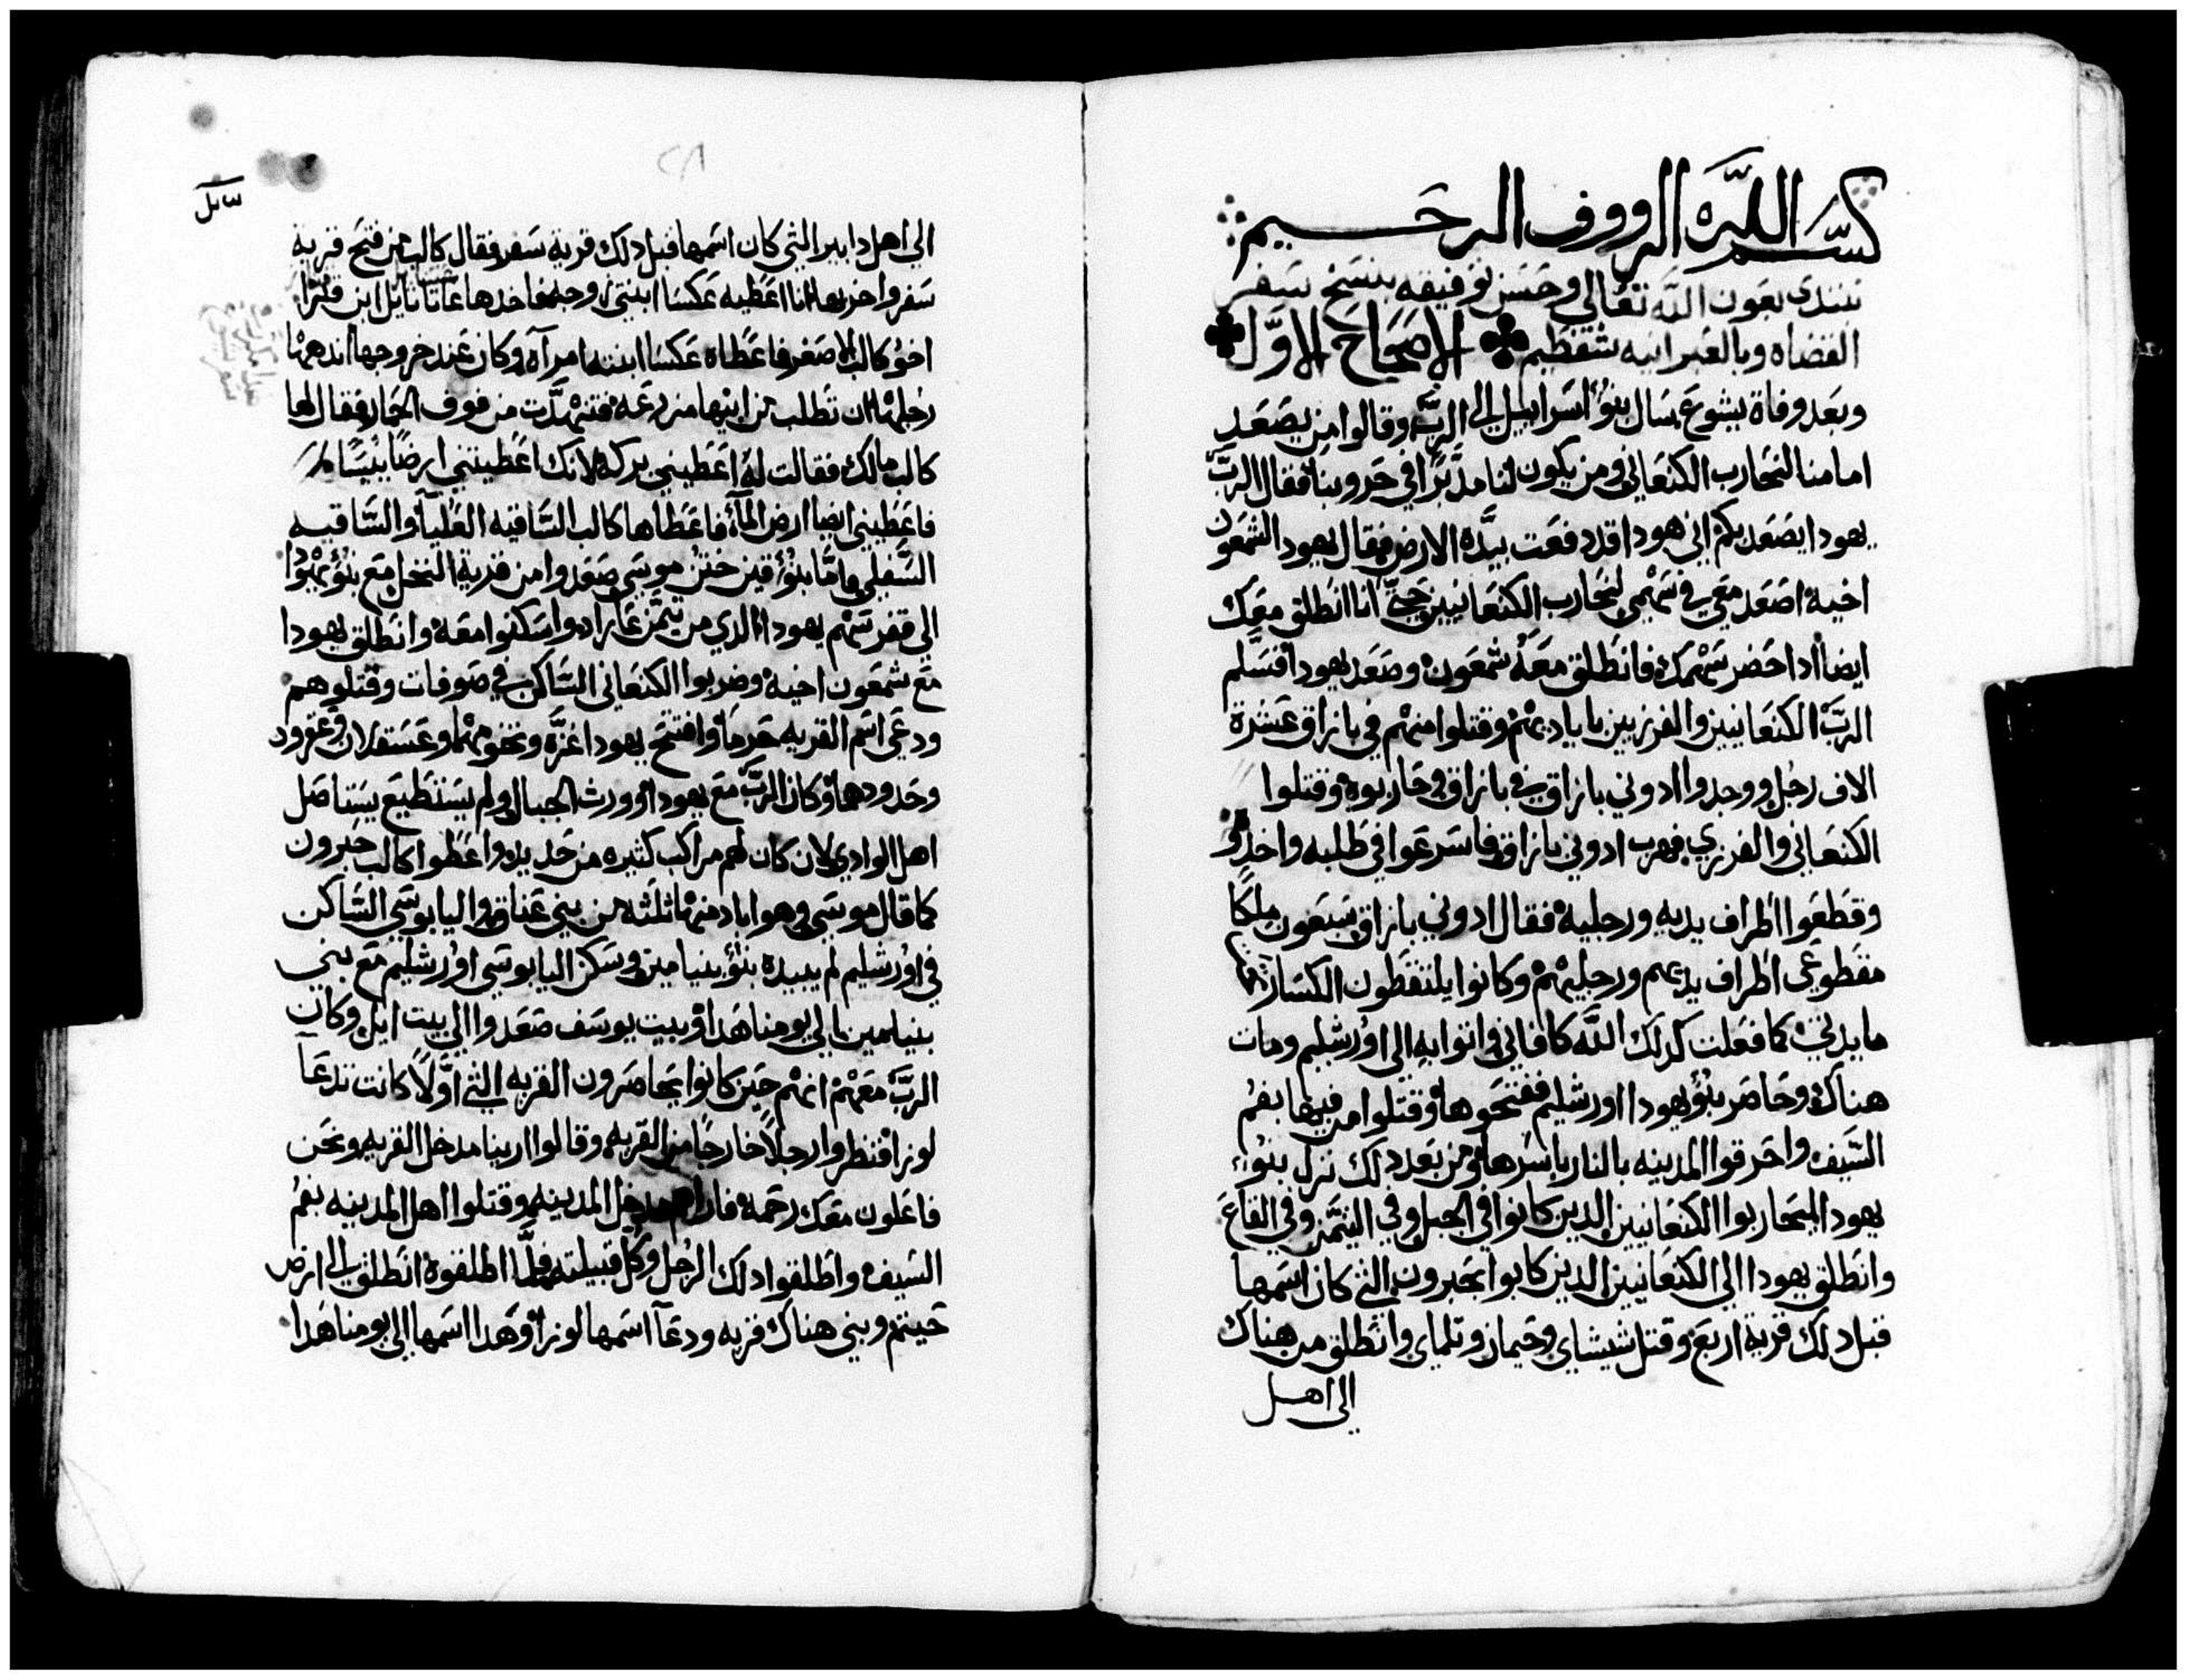 بسم الله الرووف الرحيم
نبتدي بعون الله تعالي وحسن توفيقه بنسخ سفر
القضاه وبالعبرانيه شفطيم الاصحاح الاول
وبعد وفاة يشوع سال بنو اسراييل الي الرب وقالوا من يصعد
امامنا لنحارب الكنعاني ومن يكون لنا مدبرًا في حروبنا فقال الرب
يهودا يصعد بكم اني هودا قد دفعت بيده الارض فقال يهودا لشمعون
اخيه اصعد معي في سهمي لنحارب الكنعانيين حتي انا انطلق معك
ايضا ادا حضر سهمك فانطلق معه شمعون وصعد يهودا فسلم
الرب الكنعانيين والفرزيين باياديهم وقتلوا منهم في بازاق عشرة
الاف رجل ووجدوا ادوني بازاق في بازاق وحاربوه وقتلوا
الكنعاني والفرزي فهرب ادوني بازاق فاسرعوا في طلبه واخدوه
وقطعوا اطراف يديه ورجليه فقال ادوني بازاق سبعون ملكًا
مقطوعي اطراف يديهم ورجليهم وكانوا يلتقطون الكسار تحت
مايدتي كما فعلت كدلك الله كافاني واتوا به الي اورشليم ومات
هناك وحاصر بنو يهودا اورشليم ففتحوها وقتلوا من فيها بفم
السيف واحرقوا المدينه بالنار باسرها ومن بعد دلك نزل بنو
يهودا ليحاربوا الكنعانيين الدين كانوا في الجبل وفي التيمن وفي القاع
وانطلق يهودا الي الكنعانيين الدين كانوا بحبرون التي كان اسمها
قبل دلك قرية اربع وقتل شيشاي وحيمان وتلماي وانطلق من هناك
الي اهل
سايل
الي اهل دابير التي كان اسمها قبل دلك قرية سفر فقال كالب من فتح قرية
سفر واخربها انا اعطيه عكسا ابنتي زوجه فاخدها عاتانايل ابن قنزا
اخو كالب الاصغر فاعطاه عكسا ابنته امراه وكان عند خروجها اندهمها
رجلها ان تطلب من ابيها مزرعه فتنهدت من فوق الحمار فقال لها
كالب مالك فقالت له اعطيني بركه لانك اعطيتني ارضًا يبيسًا
فاعطيني ايضا ارض المآء فاعطاها كالب الساقيه العليا والساقيه
السفلي واما بنو قين ختن موسي صعدوا من قرية النخل مع بنو يهودا
الي قفر سهم يهودا الدي من تيمن عاراد واسكنوا معه وانطلق يهودا
مع شمعون اخيه وضربوا الكنعاني الساكن في صوفات وقتلوهم
ودعي اسم القريه حرما وافتتح يهودا غزه وتخومها وعسقلان وعقرون
وحدودهما وكان الرب مع يهودا وورث الجبال ولم يستطيع يستاصل
اهل الوادي لان كان لهم مراكب كتيره من حديد واعطوا كالب حبرون
كما قال موسي وهو اباد منها ثلثه من بني عناق واليابوسي الساكن
في اورشليم لم يبيده بنو بنيامين وسكن اليابوسي اورشليم مع بني
بنيامين الي يومنا هدا وبيت يوسف صعدوا الي بيت ايل وكان
الرب معهم انهم حين كانوا يحاصرون القريه التي اولًا كانت تدعآ
لوزا فنظروا رجلًا خارجًا من القريه وقالوا ارينا مدخل القريه ونحن
فاعلون معك رحمه فاراهم مدخل المدينه وقتلوا اهل المدينه بفم
السيف واطلقوا دلك الرجل وكل قبيلته فلما اطلقوه انطلق الي ارض
حيتم وبني هناك قريه ودعآ اسمها لوزا وهدا اسمها الي يومنا هدا